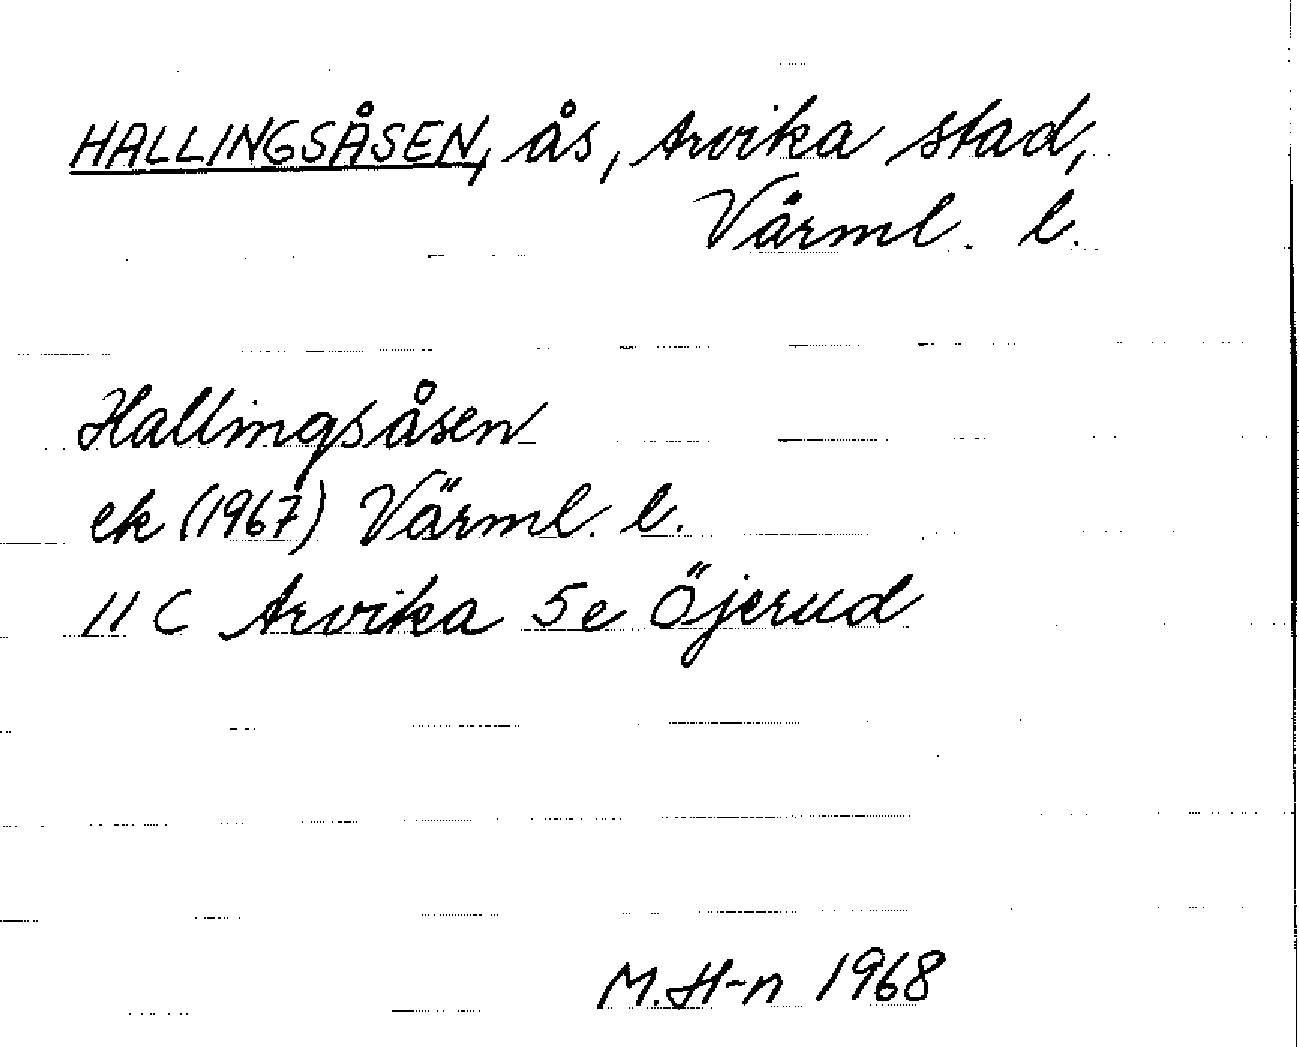 HALLINGSÅSEN, ås, Arvika stad,
Värml. l.
Hallingsåsen
ek (1967) Värml. l.
11 C Arvika 5e Öjerud
M.H-n 1968